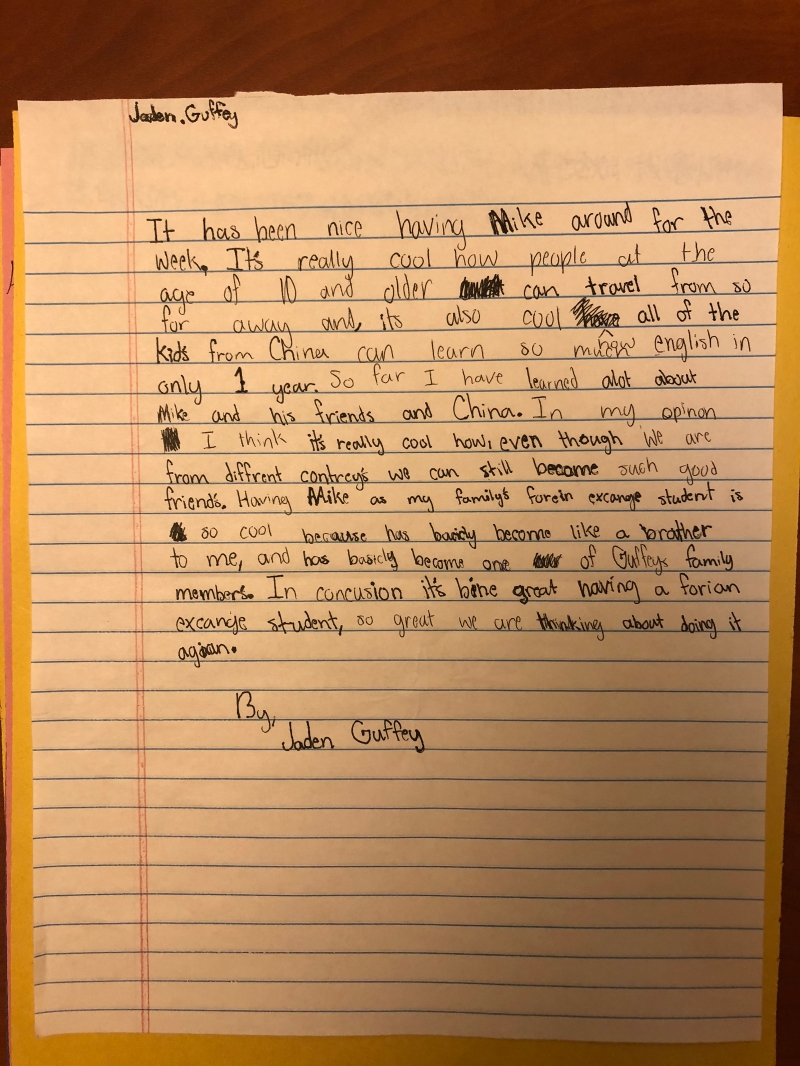 Jaden. Guffey
It has been nice having Mike around for the
week. It's really cool how people at the
age of 10 and older can travel from so
far away and, its also cool all of the
kids from China can learn so much english in
only 1 year. So far I have learned alot about
Mike and his friends and China. In my opinon
I think it's really cool how, even though we are
from diffrent contrey's we can still become such good
friends. Having Mike as my family's forein excange student is
so cool because has basicly become like a brother
to me, and has basicly become one of Guffeys family
members. In concusion it's bine great having a forian
excange student, so great we are thinking about doing it
agian.
By,
Jaden Guffey